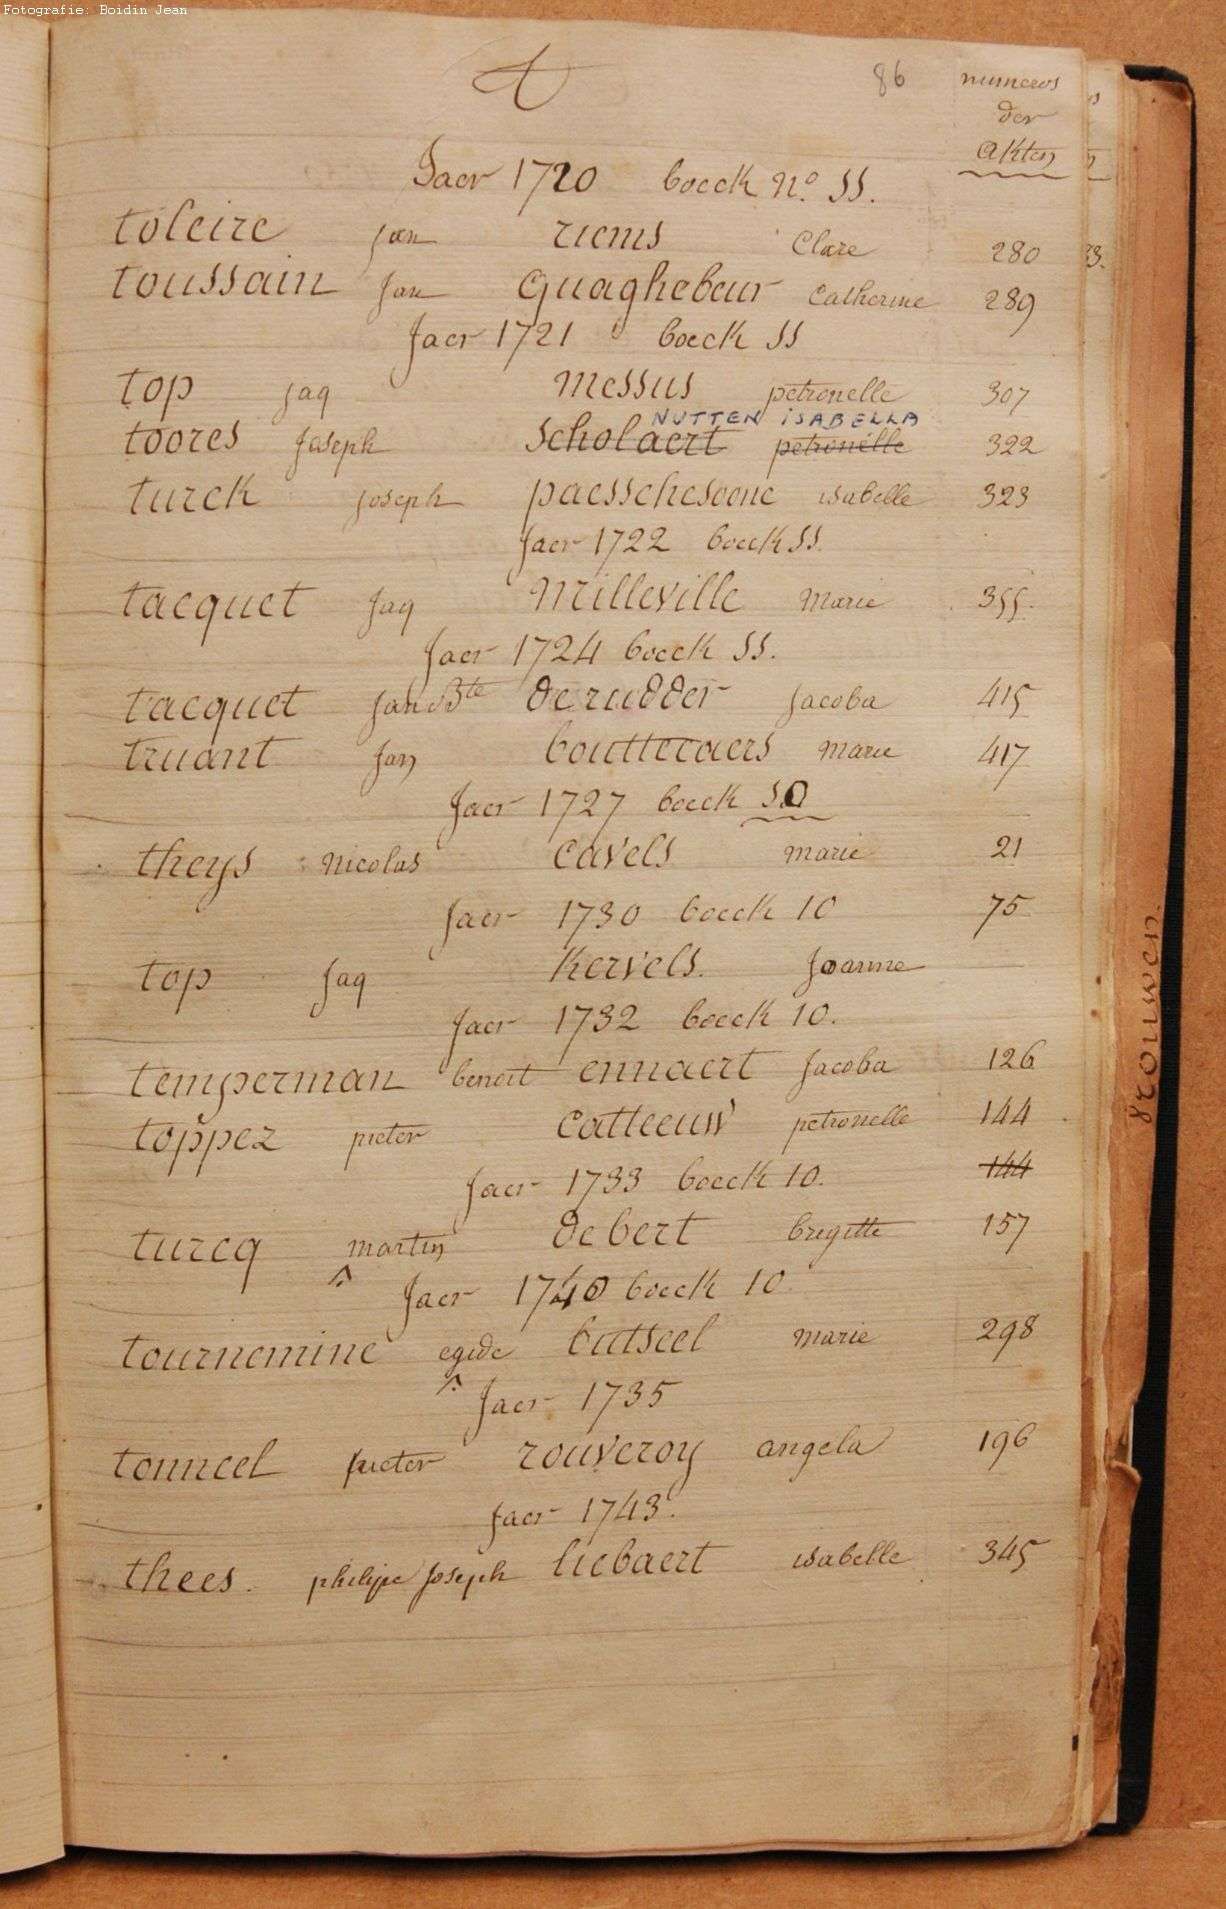 Fotografie: Boidin Jean
T 86 numeros
der
akten
Jaer 1720 boeck No. SS.
toleire jan riems Clare 280
toussain Jan Quaghebeur Catherine 289
Jaer 1721 boeck SS
top jaq messus petronelle 307
NUTTEN ISABELLA
toores Joseph scholaert petronelle 322
turck joseph paesschesoone isabelle 323
Jaer 1722 boeck SS.
tacquet Jaq Milleville Marie 355.
Jaer 1724 boeck SS.
tacquet Jan Bte de rudder Jacoba 415
truant Jan bouttecaers marie 417
Jaer 1727 boeck
theys nicolas cavels marie 21
Jaer 1730 boeck 10 75
top Jaq Kervels. Joanne
Jaer 1732 boeck 10.
temperman benoit ennaert Jacoba 126
toppez pieter catteeuw petronelle 144
Jaer 1733 boeck 10. 144
turcq martin de bert bregitte 157
Jaer 1740 boeck 10
tournemine egide butseel marie 298
Jaer 1735
tonneel pieter rouveroy angela 196
Jaer 1743.
thees. philippe Joseph liebaert isabelle 345
vrouwen